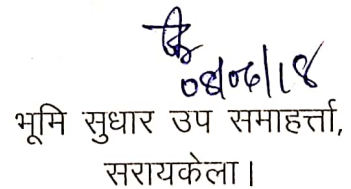 08/06/18
भूमि सुधार उप समाहर्त्ता,
सरायकेला।